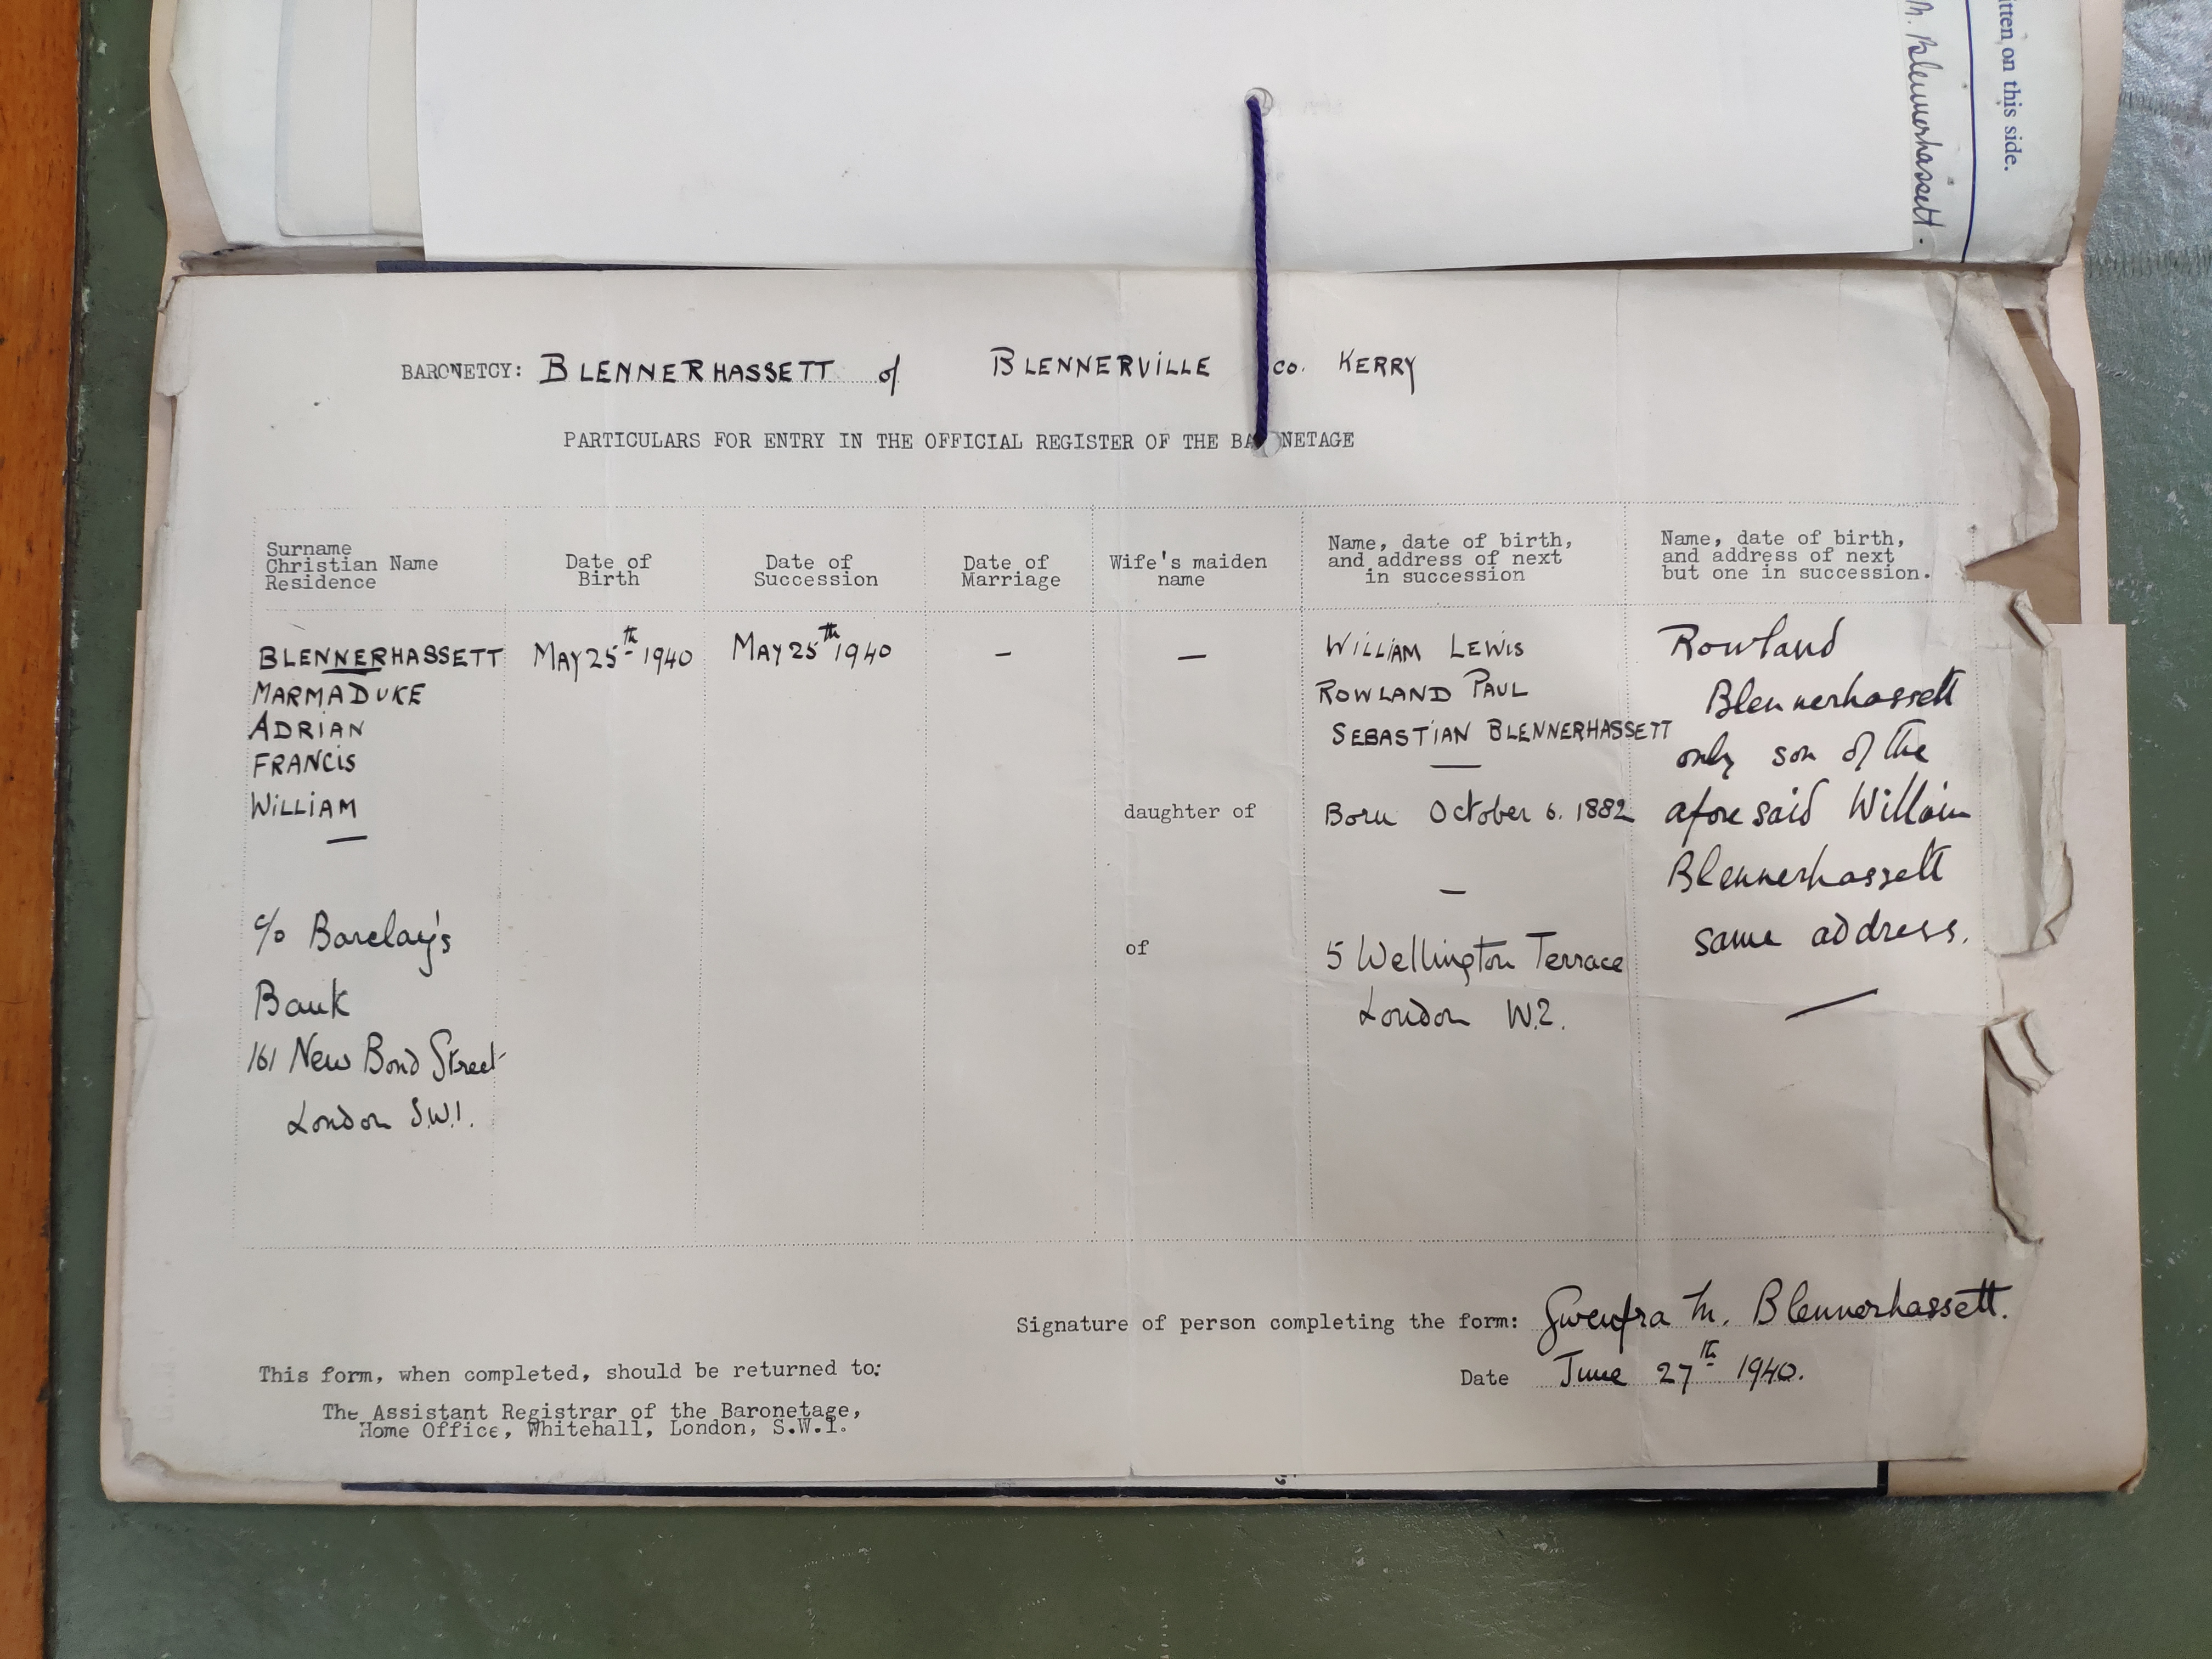 itten on this side.
M. Blennerhassett.
BARONETCY: BLENNERHASSETT of BLENNERVILLE co. KERRY
PARTICULARS FOR ENTRY IN THE OFFICIAL REGISTER OF THE BA NETAGE
Surname
Christian Name
Residence
Date of
Birth
Date of
Succession
Date of
Marriage
Wife's maiden
name
Name, date of birth,
and address of next
in succession
Name, date of birth,
and address of next
but one in succession.
BLENNERHASSETT
MARMADUKE
ADRIAN
FRANCIS
WILLIAM
—
c/o Barclay's
Bank
161 New Bond Street
London S.W.1.
May 25th 1940
May 25th 1940
—
—
daughter of
of
WILLIAM LEWIS
ROWLAND PAUL
SEBASTIAN BLENNERHASSETT
—
Born October 6. 1882
—
5 Wellington Terrace
London W.2.
Rowland
Blennerhassett
only son of the
aforesaid Willain
Blennerhassett
same address.
—
Signature of person completing the form: Gwenfra M. Blennerhassett.
Date June 27th 1940.
This form, when completed, should be returned to:
The Assistant Registrar of the Baronetage,
Home Office, Whitehall, London, S.W.1.